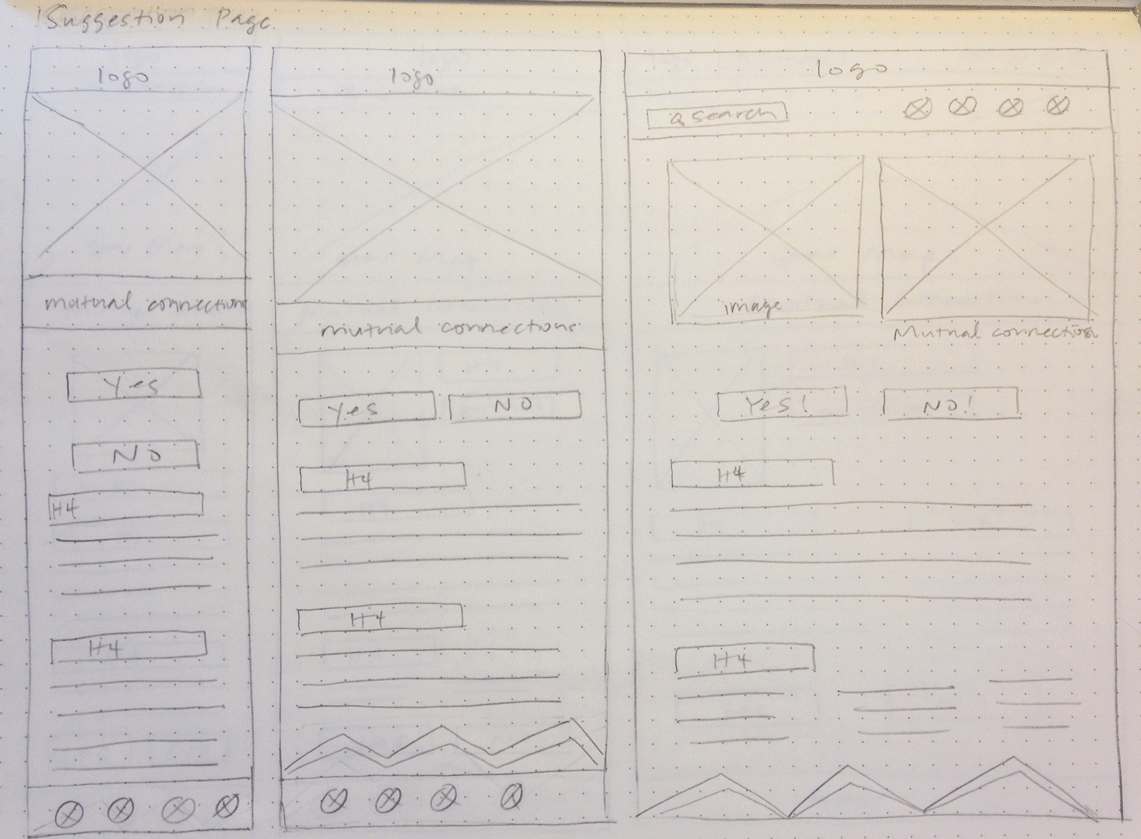 Suggestion Page
logo
mutual connections
Yes
NO
H4
H4
logo
mutrial connections
Yes
NO
H4
H4
logo
Q search
image
Mutual connection
Yes!
NO!
H4
H4